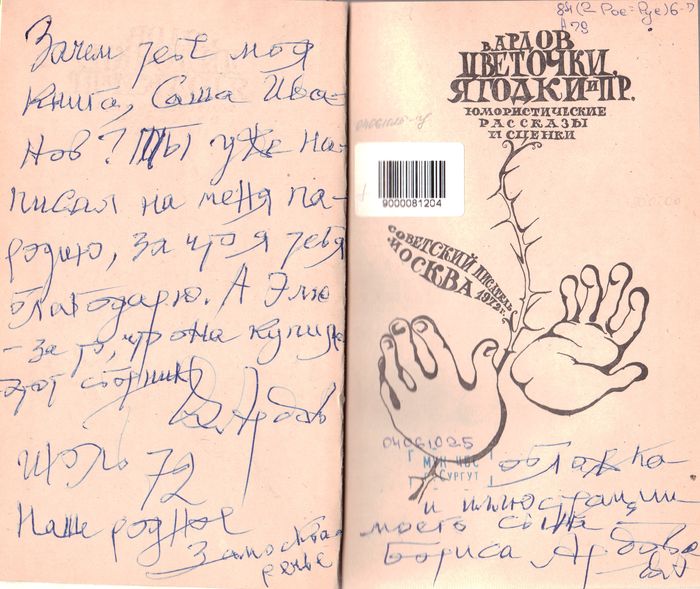 Зачем тебе моя
книга, Саша Ива-
нов? Ты уже на-
писал на меня па-
родию, за что я тебя
благодарю. А Элю
- за то, что она купила
этот сборник
В. Ардов
Июль 72
Наше родное
Замоскво
речье
84(2Рос=Рус)6-7
А 79
В. АРДОВ
ЦВЕТОЧКИ,
ЯГОДКИ И ПР.
ЮМОРИСТИЧЕСКИЕ
РАССКАЗЫ
И СЦЕНКИ
9000081204
СОВЕТСКИЙ ПИСАТЕЛЬ
МОСКВА
1972 г.
04061025
МУК ЦБС
г. СУРГУТ
обложка
и иллюстрации
моего сына
Бориса Ардова